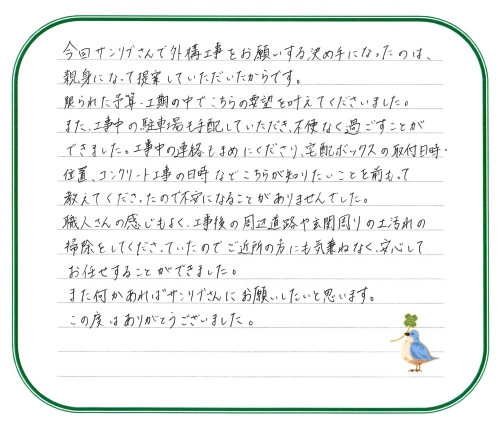 今回サンリブさんで外構工事をお願いする決め手になったのは、
親身になって提案していただいたからです。
限られた予算・工期の中でこちらの要望を叶えてくださいました。
また、工事中の駐車場も手配していただき、不便なく過ごすことが
できました。工事中の連絡もまめにくださり、宅配ボックスの取付日時・
位置、コンクリート工事の日時などこちらが知りたいことを前もって
教えてくださったので不安になることがありませんでした。
職人さんの感じもよく、工事後の周辺道路や玄関周りの土汚れの
掃除をしてくださっていたのでご近所の方にも気兼ねなく、安心して
お任せすることができました。
また何かあればサンリブさんにお願いしたいと思います。
この度はありがとうございました。